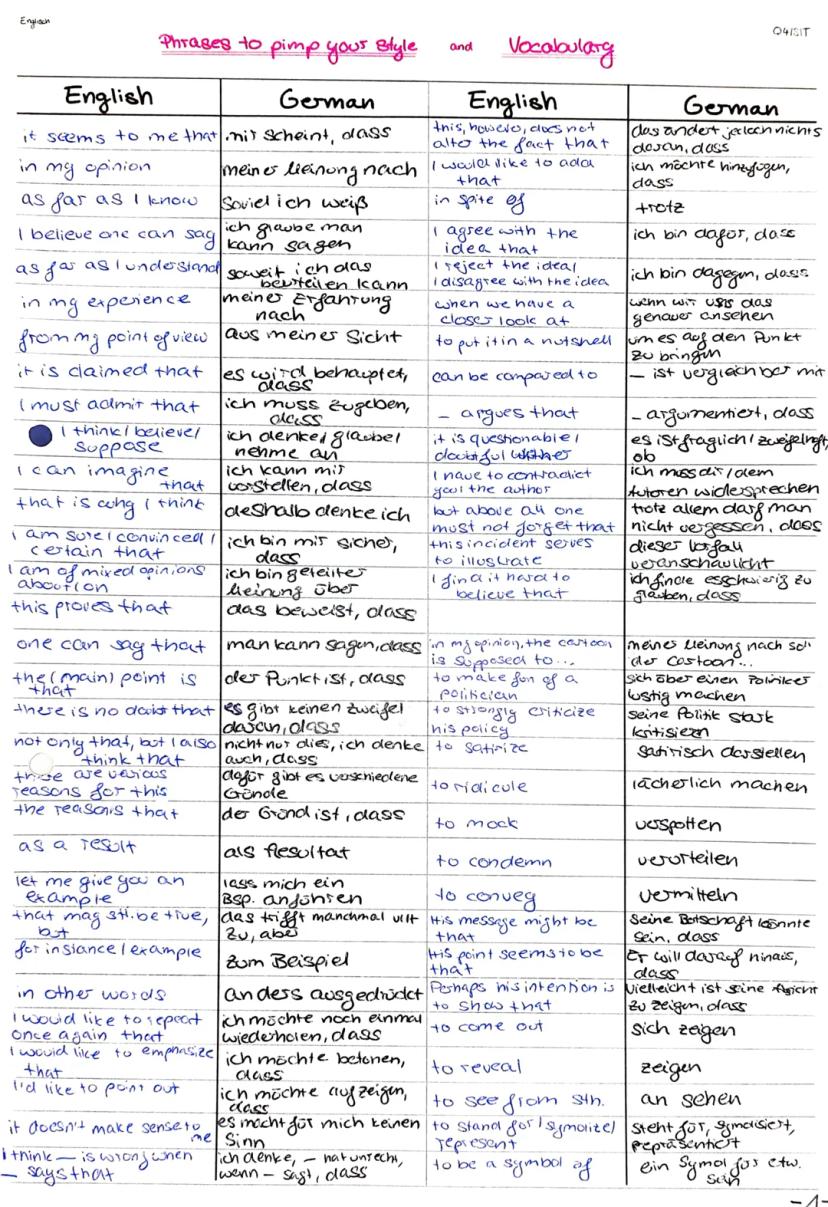 Englisch
Q4/SIT
Phrases to pimp your style and Vocabulary
English
German
English
German
it seems to me that
mir scheint, dass
this, however, does not
alter the fact that
das ändert jedoch nichts
daran, dass
in my opinion
meiner Meinung nach
I would like to add
that
ich möchte hinzufügen,
dass
as far as I know
Soviel ich weiß
in spite of
trotz
I believe one can say
ich glaube man
kann sagen
I agree with the
idea that
ich bin dafür, dass
as far as I understand
soweit ich das
beurteilen kann
I reject the idea/
I disagree with the idea
ich bin dagegen, dass
in my experience
meiner Erfahrung
nach
when we have a
closer look at
wenn wir uns das
genauer ansehen
from my point of view
aus meiner Sicht
to put it in a nutshell
um es auf den Punkt
zu bringen
it is claimed that
es wird behauptet,
dass
can be compared to
– ist vergleichbar mit
I must admit that
ich muss zugeben,
dass
– argues that
– argumentiert, dass
I think/believe/
suppose
ich denke/glaube/
nehme an
it is questionable/
doubtful whether
es ist fraglich/zweifelhaft,
ob
I can imagine
that
ich kann mir
vorstellen, dass
I have to contradict
you/the author
ich muss dir/dem
Autoren widersprechen
that is why I think
deshalb denke ich
but above all one
must not forget that
trotz allem darf man
nicht vergessen, dass
I am sure/convinced/
certain that
ich bin mir sicher,
dass
this incident serves
to illustrate
dieser Vorfall
veranschaulicht
I am of mixed opinions
about/on
ich bin geteilter
Meinung über
I find it hard to
believe that
ich finde es schwierig zu
glauben, dass
this proves that
das beweist, dass
one can say that
man kann sagen, dass
in my opinion, the cartoon
is supposed to...
meiner Meinung nach soll
der Cartoon...
the (main) point is
that
der Punkt ist, dass
to make fun of a
politician
sich über einen Politiker
lustig machen
there is no doubt that
es gibt keinen Zweifel
daran, dass
to strongly criticize
his policy
seine Politik stark
kritisieren
not only that, but I also
think that
nicht nur dies, ich denke
auch, dass
to satirize
satirisch darstellen
there are various
reasons for this
dafür gibt es verschiedene
Gründe
to ridicule
lächerlich machen
the reason is that
der Grund ist, dass
to mock
verspotten
as a result
als Resultat
to condemn
verurteilen
let me give you an
example
lass mich ein
Bsp. anführen
to convey
vermitteln
that may be true,
but
das trifft manchmal
zu, aber
His message might be
that
Seine Botschaft könnte
sein, dass
for instance/example
zum Beispiel
His point seems to be
that
Er will darauf hinaus,
dass
in other words
anders ausgedrückt
Perhaps his intention is
to show that
Vielleicht ist seine Absicht
zu zeigen, dass
I would like to repeat
once again that
ich möchte noch einmal
wiederholen, dass
to come out
sich zeigen
I would like to emphasize
that
ich möchte betonen,
dass
to reveal
zeigen
I'd like to point out
ich möchte aufzeigen,
dass
to see from sth.
an sehen
it doesn't make sense to
me
es macht für mich keinen
Sinn
to stand for/symbolize/
represent
steht für, symolisiert,
repräsentiert
I think – is wrong when
– says that
ich denke, – hat unrecht,
wenn – sagt, dass
to be a symbol of
ein Symol für etw.
sein
-1-